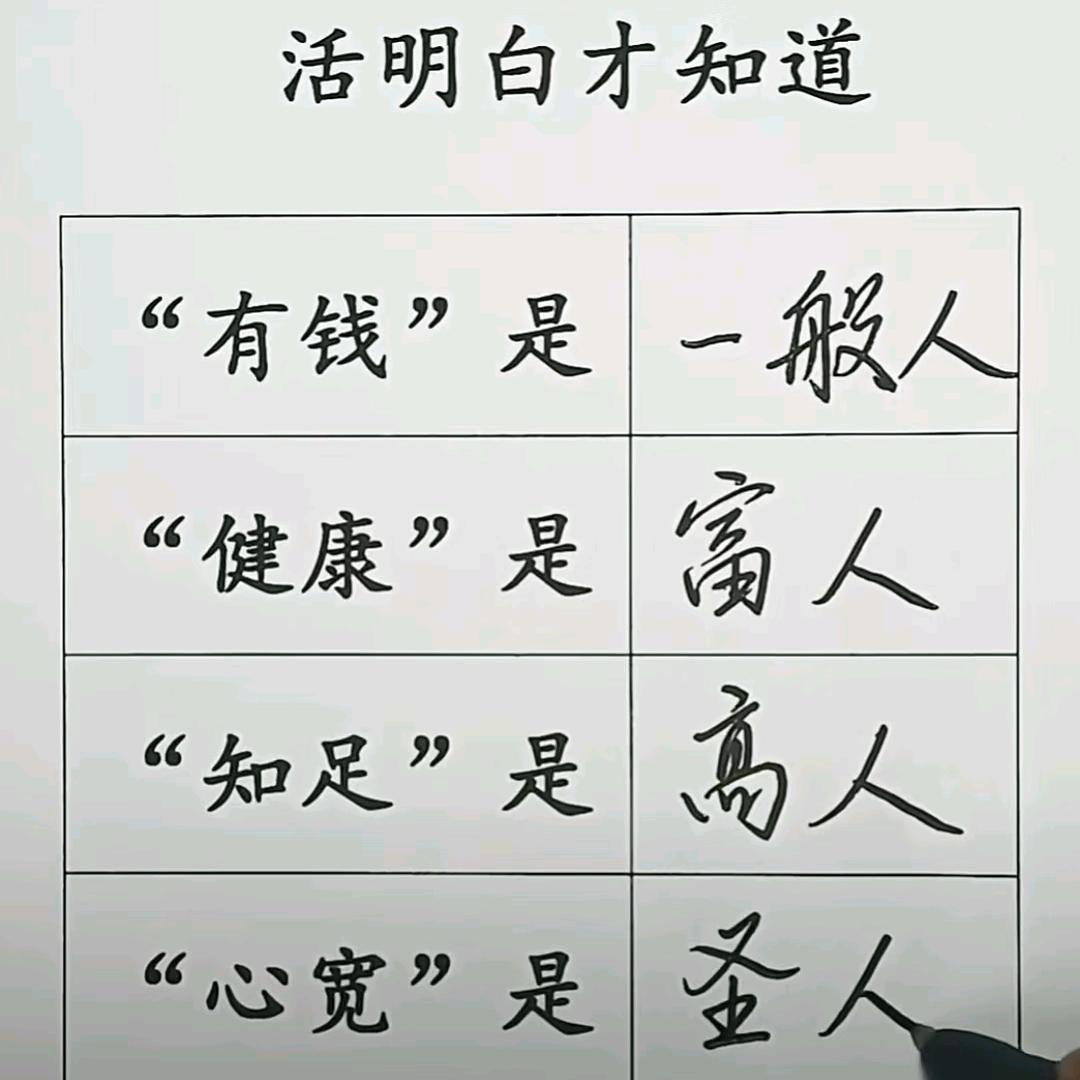 活明白才知道
“有钱”是 一般人
“健康”是 富人
“知足”是 高人
“心宽”是 圣人